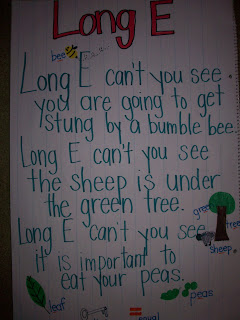 Long E
bee
Long E can't you see
you are going to get
stung by a bumble bee.
Long E can't you see
the sheep is under
the green tree.
green
tree
Long E can't you see
sheep
it is important to
eat your peas.
leaf
peas
equal